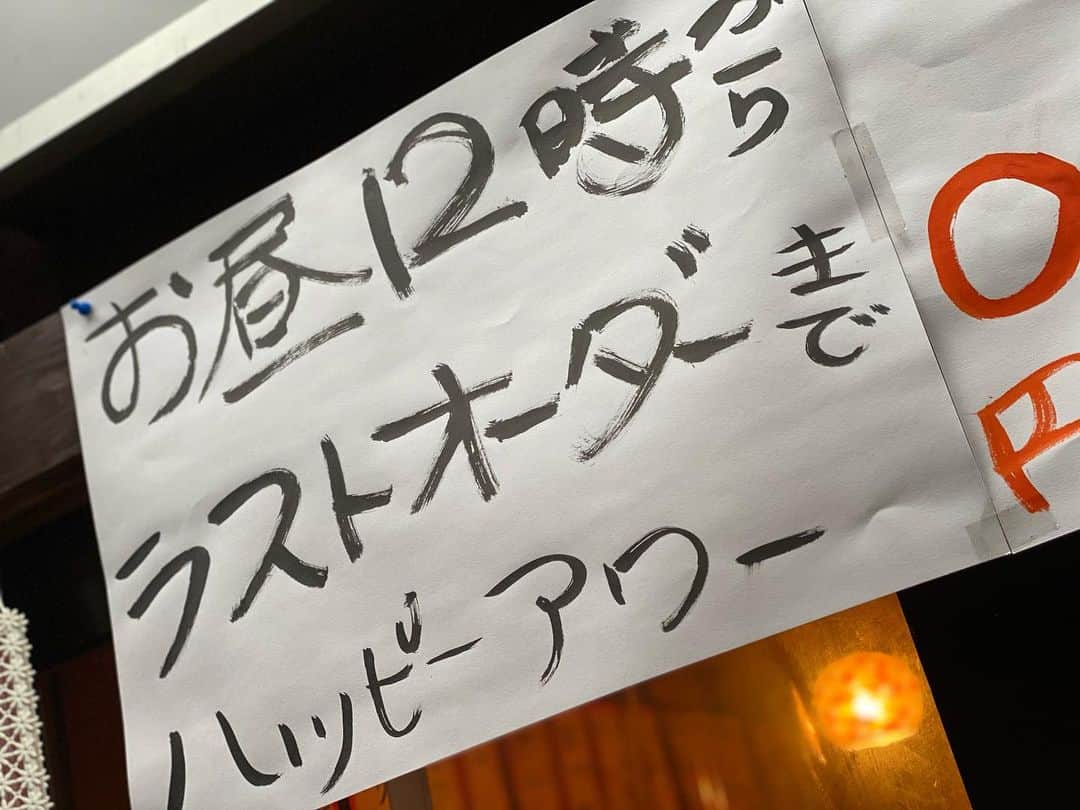 お昼12時から
ラストオーダーまで
ハッピーアワー
O